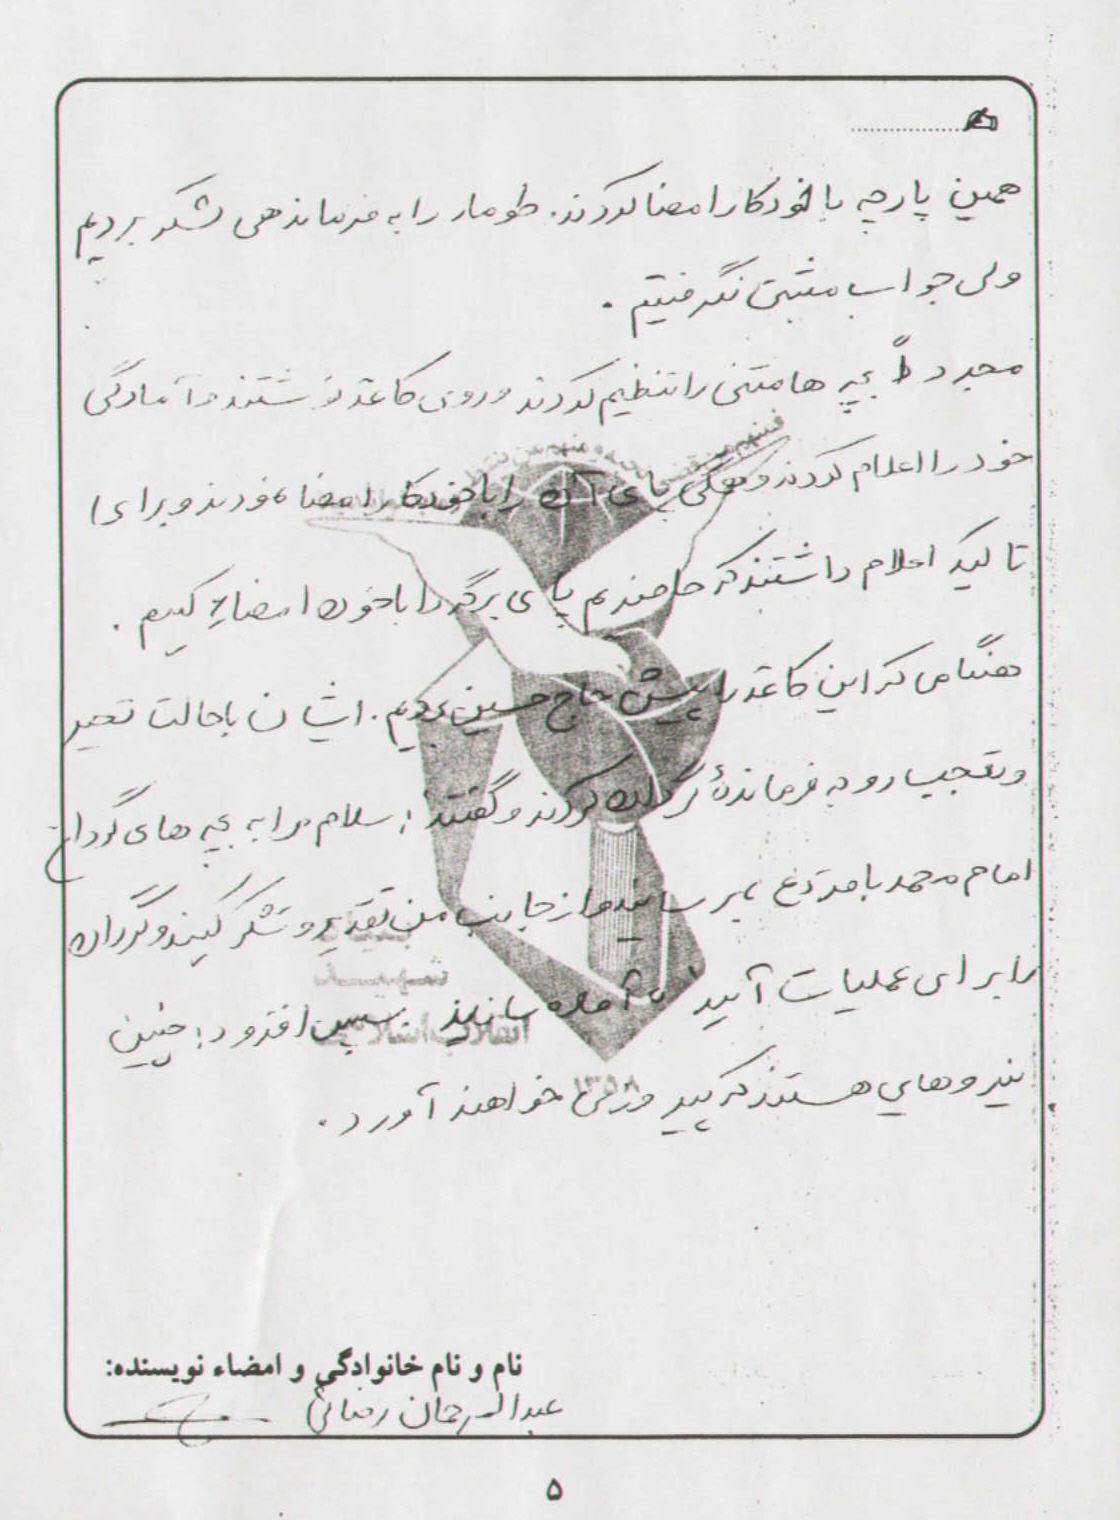 همین پارچه با خودکار امضا کردند. طومار را به فرماندهی لشکر بردیم
ولی جواب مثبتی نگرفتیم.
مجدداً بچه ها متنی را تنظیم کردند و روی کاغذ نوشتند و آمادگی
خود را اعلام کردند و همگی پای آن را با خودکار امضاء نمودند و برای
تاکید اعلام داشتند که حاضریم پای برگه را با خون امضاء کنیم.
هنگامی که این کاغذ را پیش حاج حسین بردیم. ایشان با حالت تحیر
و تعجب رو به فرماندهٔ گردان کردند و گفتند: سلام مرا به بچه های گردان
امام محمد باقر (ع) برسانید و از جانب من تقدیر و تشکر کنید و گردان
را برای عملیات آینده آماده سازید سپس افزود: چنین
نیروهایی هستند که پیروزی خواهند آورد.
فمنهم من قضی نحبه و منهم من ینتظر
۱۳۵۸
نام و نام خانوادگی و امضاء نویسنده:
عبدالرحمان رضائی
۵